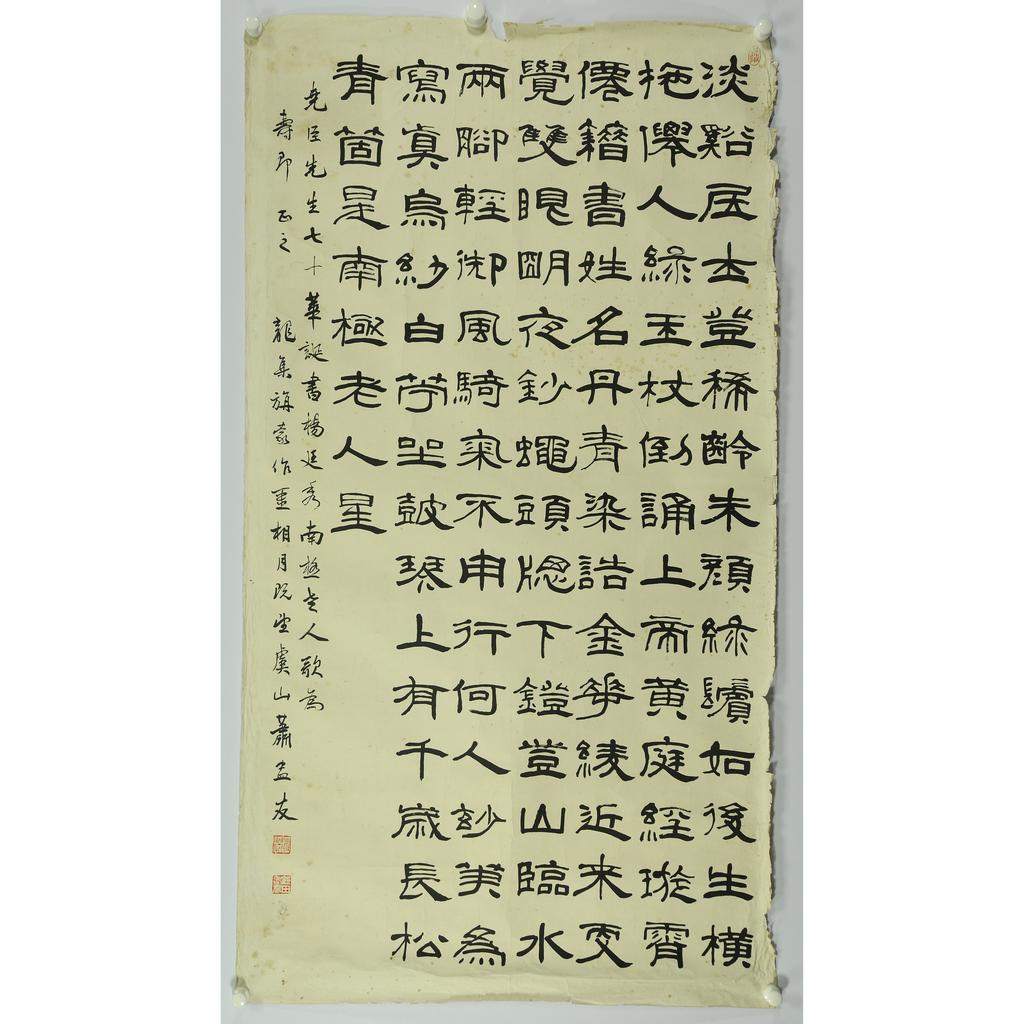 淡谿居士登稀齡朱顏綠鬢如後生橫
拖僊人綠玉杖倒誦上帝黃庭經璇霄
僊籍書姓名丹青染誥金花綾近來更
覺雙眼明夜鈔蠅頭牕下鐙登山臨水
兩腳輕御風騎氣不用行何人妙筆為
寫真烏紗白苧坐鼓琴上有千歲長松
青箇是南極老人星
堯臣先生七十華誕書楊廷秀南極老人歌為
壽即 正之 龍集旃蒙作噩相月既望虞山蕭盅友